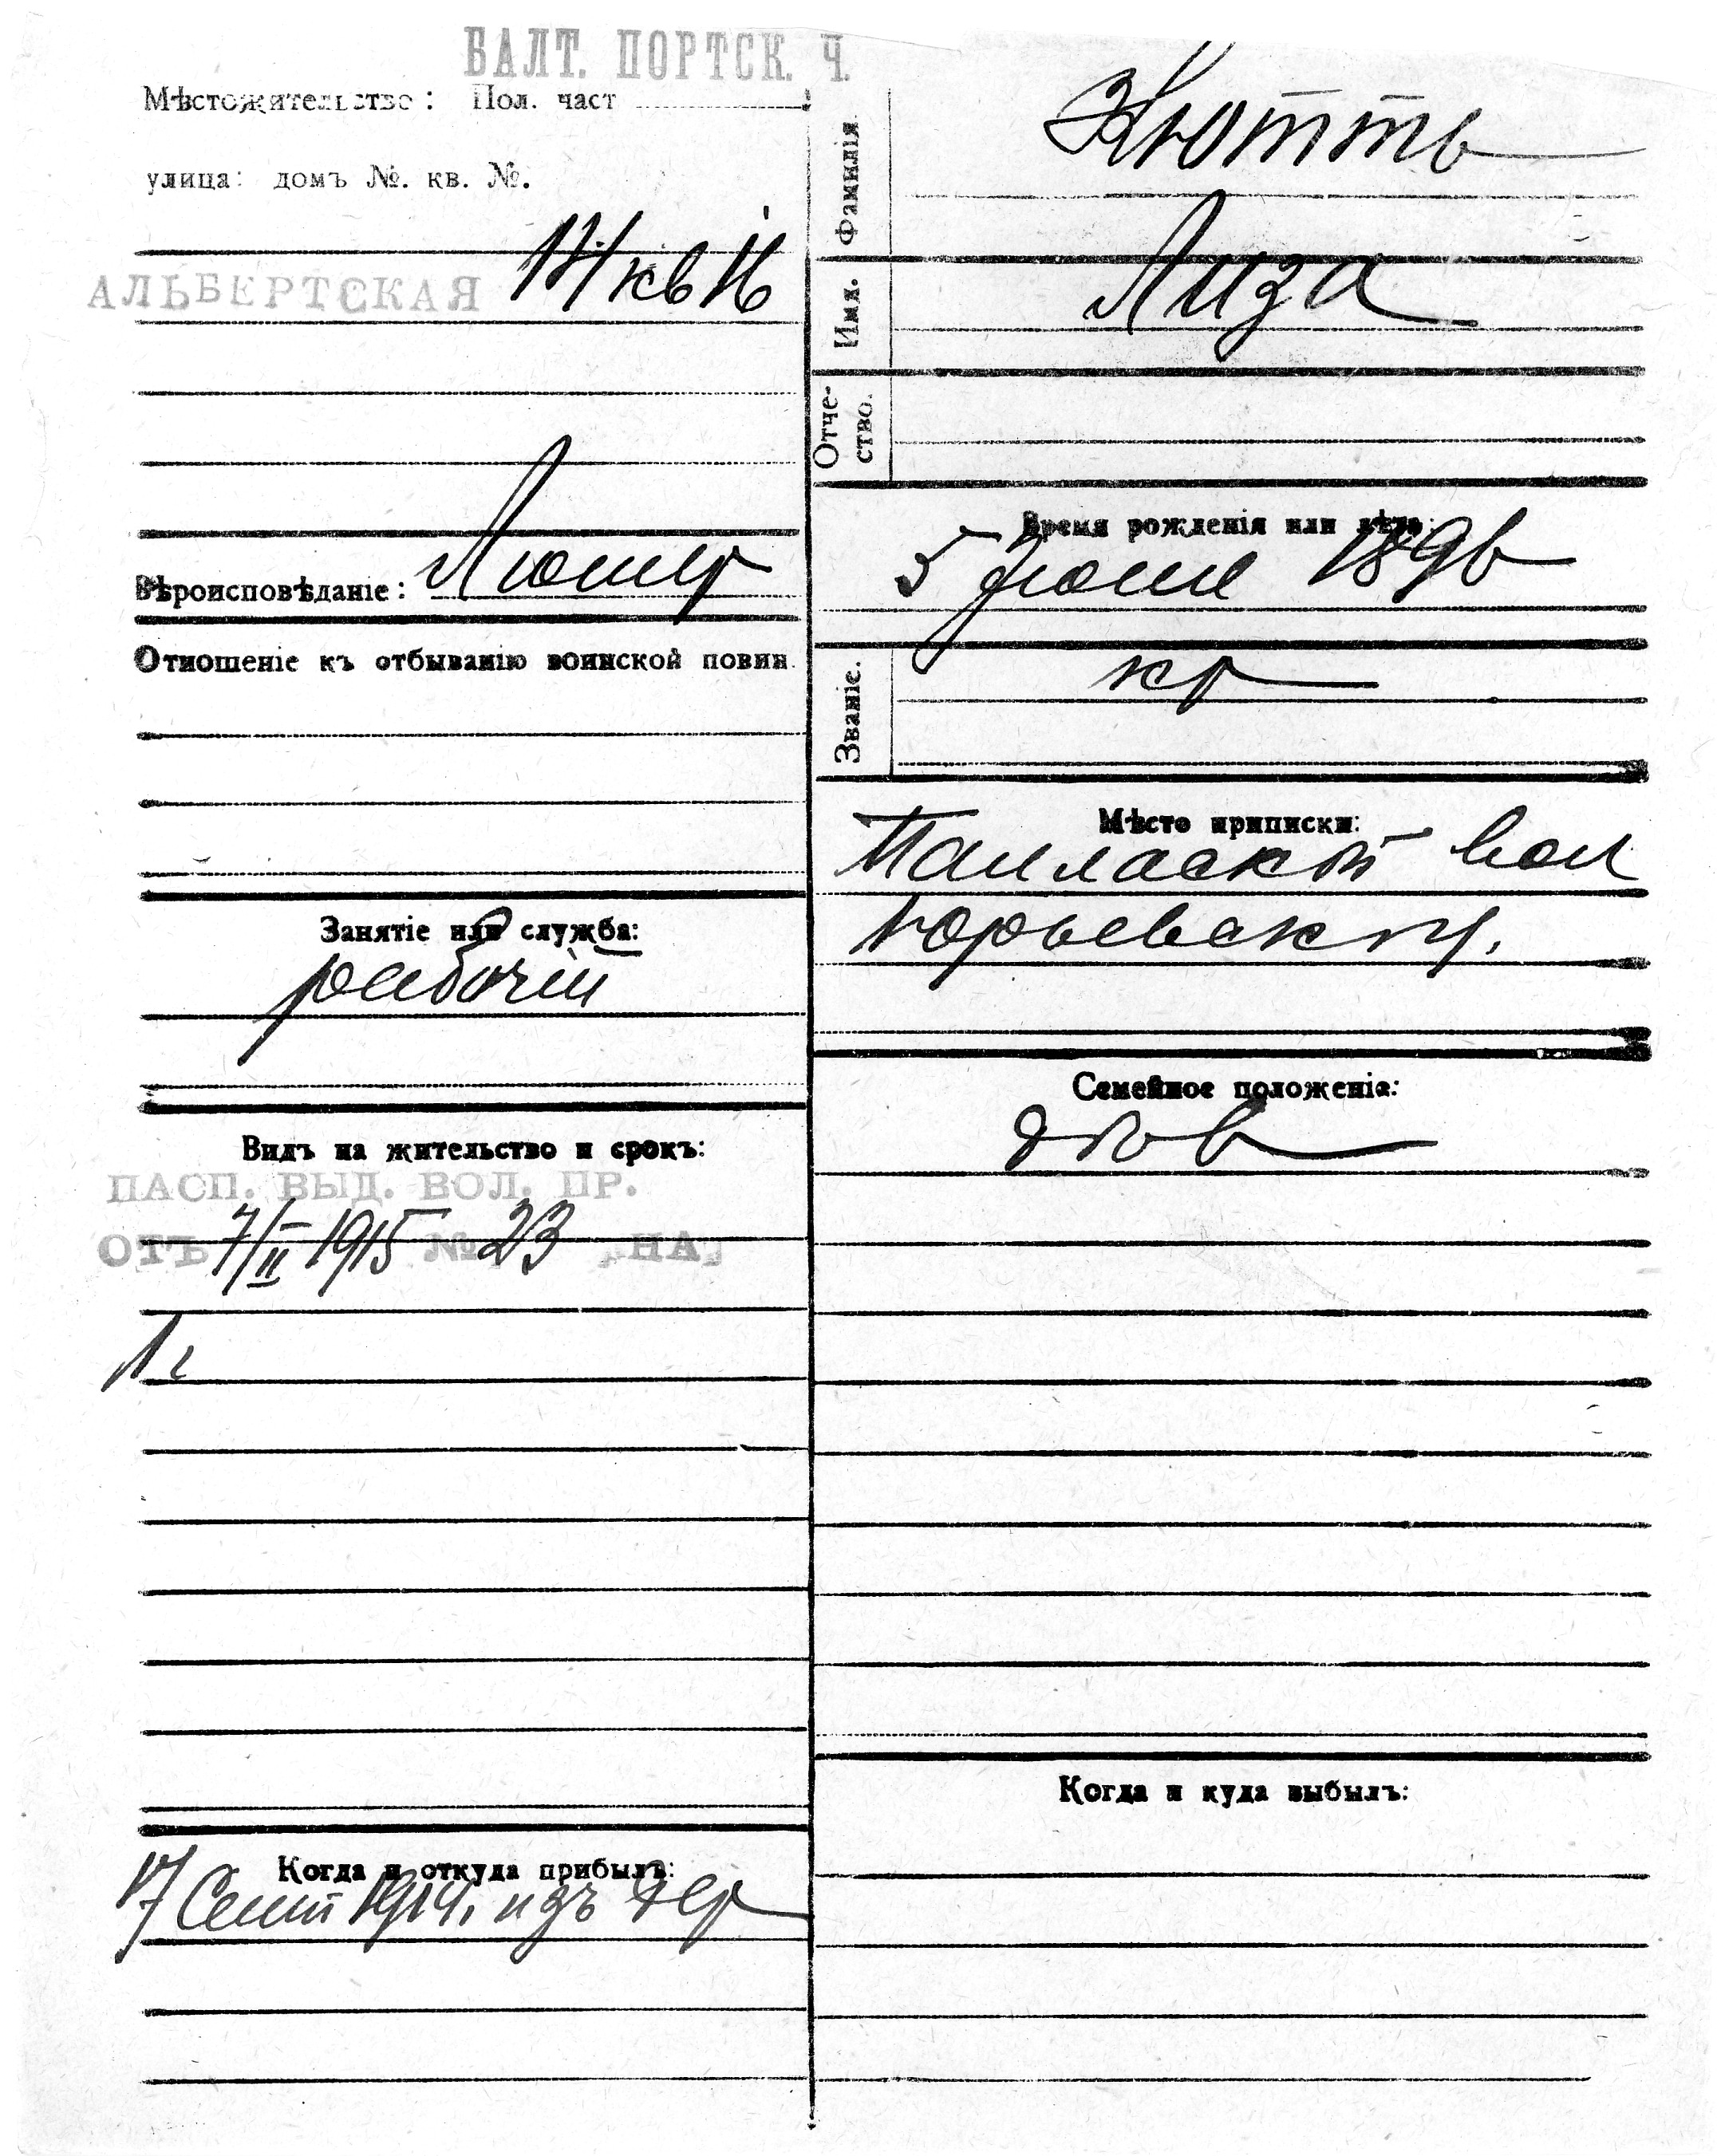 БАЛТ. ПОРТСК. Ч.
Мѣстожительство: Пол. част
улица: домъ №. кв. №.
АЛЬБЕРТСКАЯ кв 16
Вѣроисповѣданіе: Лютер
Отношеніе къ отбыванію воинской повин.
Занятіе или служба:
рабочій
Видъ на жительство и срокъ:
ПАСП. ВЫД. ВОЛ. ПР.
ОТЪ 7/II 1915 № 23 „НА„
1 г
Когда и откуда прибылъ:
17 Сент 1914. изъ дер
Фамилія
Кюттъ
Имя.
Лиза
Отче-
ство.
Время рожденія или лѣта:
5 Іюня 1896
Званіе.
кр
Мѣсто приписки:
вол
Юрьевск у.
Семейное положеніе:
дѣв
Когда и куда выбылъ: